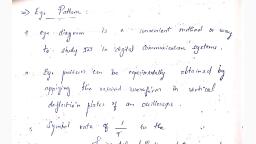 => Eye Pattern :
* eye diagram is a convenient method or way
to study ISI in digital communication systems.
* Eye pattern can be experimentally obtained by
applying the received waveform in vertical
deflection plates of an oscilloscope.
* Symbol rate of 1/T to the